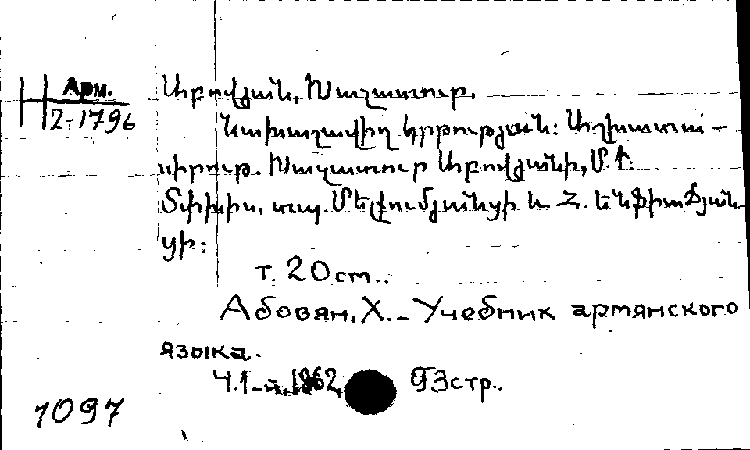 Арм.
2-1796
Աբովյան, Խաչատուր.
Նախաշավիղ կրթության: Աշխատա-
սիրութ. Խաչատուր Աբովյանի, Մ. Ի.
Տփխիս, տպ. Մելքումյանցի և Հ. Ենֆիաճյան-
ցի:
т. 20 ст..
Абовян, Х. - Учебник армянского
языка.
Ч.1-я, 1862, 93 стр..
1097